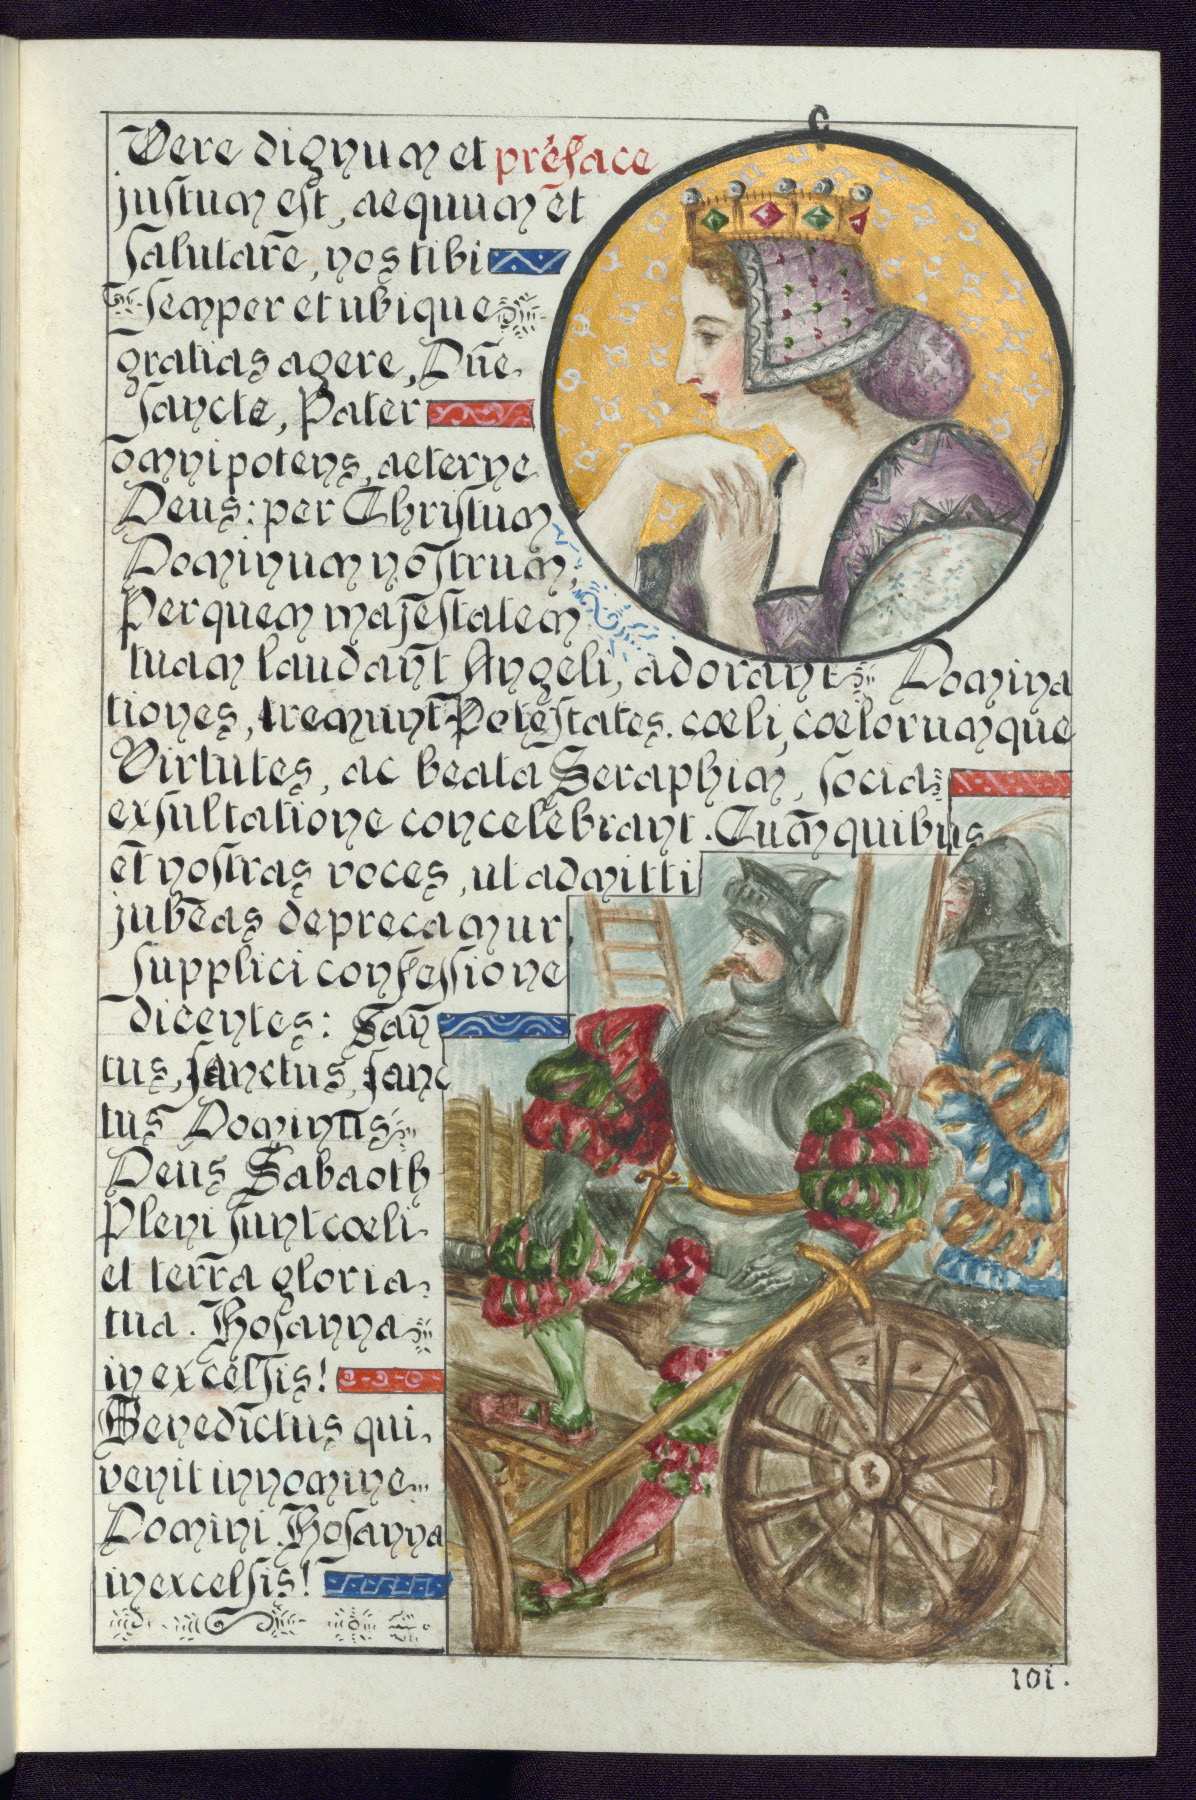 Vere dignum et préface
justum est, aequum et
salutare, nos tibi
semper et ubique
gratias agere, Dñe
sancte, Pater
omnipotens, aeterne
Deus: per Christum
Dominum nostrum,
Per quem majestatem
tuam laudant Angeli, adorant Domina
tiones, tremunt Potestates. cœli, cœlorumque
Virtutes, ac beata Seraphim, socia
exsultatione concelebrant. Cum quibus
et nostras voces, ut admitti
jubeas deprecamur
supplici confessione
dicentes: San
tus, sanctus, sanc
tus Dominus
Deus Sabaoth
Pleni sunt cœli
et terra gloria
tua. Hosanna
in excelsis!
Benedictus qui
venit in nomine
Domini. Hosanna
in excelsis!
101.